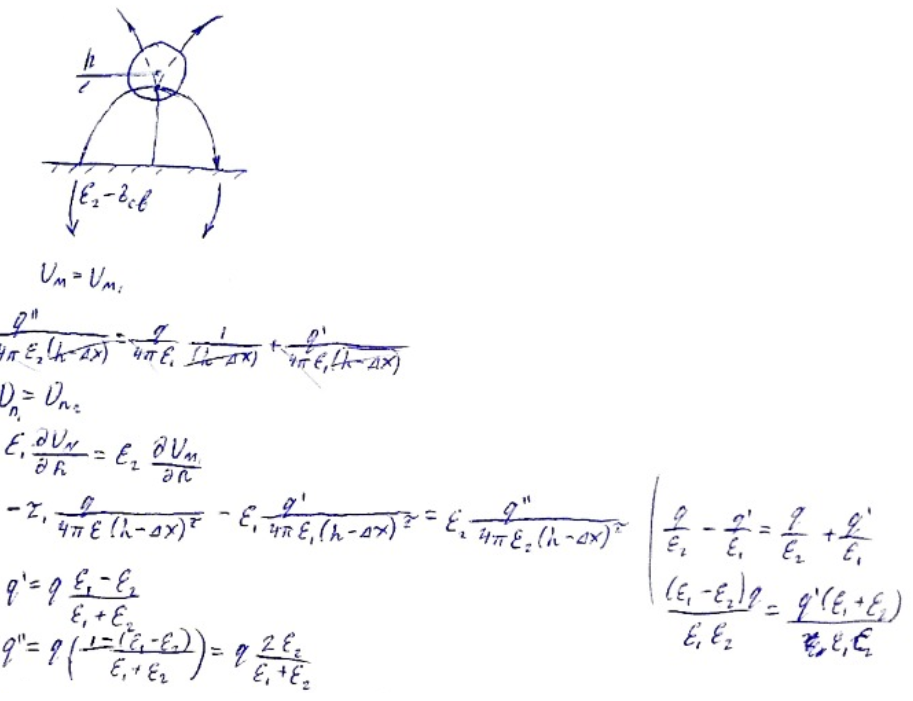 h
ε₂ - ε_св
U_M = U_M₁
q'' / 4π ε₂ (h-Δx) = q / 4π ε₁ 1 / (h-Δx) + q' / 4π ε₁ (h-Δx)
D_n₁ = D_n₂
ε₁ ∂U_N / ∂h = ε₂ ∂U_M₁ / ∂h
- ε₁ q / 4π ε (h-Δx)² - ε₁ q' / 4π ε₁ (h-Δx)² = ε₂ q'' / 4π ε₂ (h-Δx)²
q / ε₂ - q' / ε₁ = q / ε₂ + q' / ε₁
q' = q ε₁ - ε₂ / ε₁ + ε₂
(ε₁ - ε₂) q / ε₁ ε₂ = q' (ε₁ + ε₂) / ε₁ ε₂
q'' = q ( 1 - (ε₁ - ε₂) / ε₁ + ε₂ ) = q 2ε₂ / ε₁ + ε₂